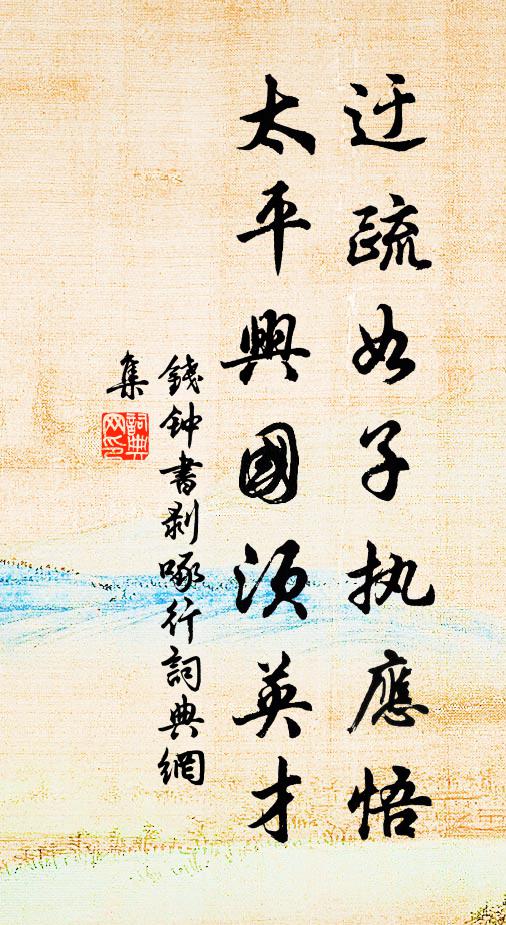 迂疏如子执應悟
太平興國須英才
錢钟書剥啄行詞典網
集
詞典網印